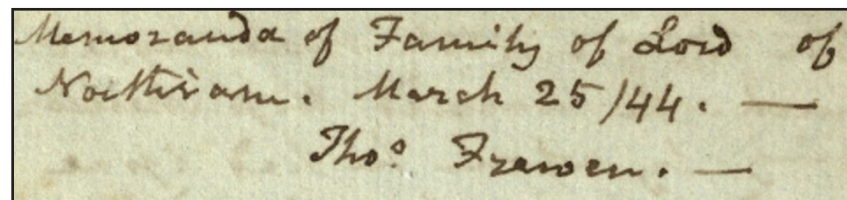 Memoranda of Family of Lord of
Northiam. March 25/44. —
Thoˢ. Frewen. —